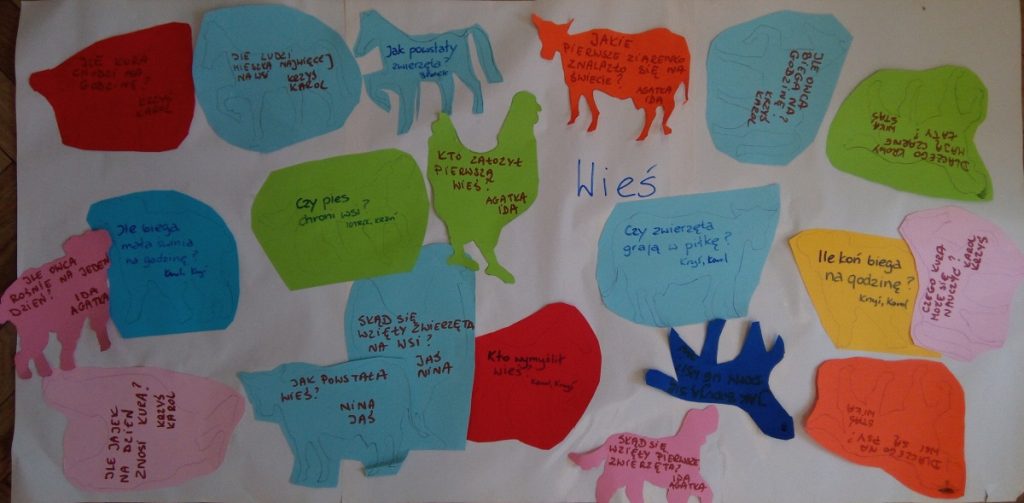 JLE KURA
CHODZI NA
GODZINĘ?
KRZYŚ
KAROL
JLE LUDZI
MIESZKA NAJWIĘCEJ
NA WSI
KRZYŚ
KAROL
Jak powstały
zwierzęta?
JAKIE
PIERWSZE ZIARENKO
ZNALAZŁO SIĘ NA
ŚWIECIE?
AGATKA
IDA
JLE OWCA
BIEGA NA
GODZINĘ?
KRZYŚ
KAROL
DLACZEGO KROWY
MAJĄ CZARNE
ŁATY?
MIKA
STAŚ
KTO ZAŁOŻYŁ
PIERWSZĄ
WIEŚ?
AGATKA
IDA
Wieś
Czy pies
chroni wsi?
Jle biega
mała świnia
na godzinę?
Karol, Krzyś
JLE OWCA
ROŚNIE NA JEDEN
DZIEŃ?
IDA
AGATKA
Czy zwierzęta
grają w piłkę?
Krzyś, Karol
Ile koń biega
na godzinę?
Krzyś, Karol
CZEGO KURA
MOŻE SIĘ
NAUCZYĆ?
KAROL
KRZYŚ
SKĄD SIĘ
WZIĘŁY ZWIERZĘTA
NA WSI?
JAŚ
NINA
Kto wymyślił
wieś?
Karol, Krzyś
JLE JAJEK
NA DZIEŃ
ZNOSI KURA?
KRZYŚ
KAROL
JAK POWSTAŁA
WIEŚ?
NINA
JAŚ
SKĄD SIĘ
WZIĘŁY PIERWSZE
ZWIERZĘTA?
IDA
AGATKA
DLACZEGO NA
WSI SĄ PSY?
STAŚ
MIKA